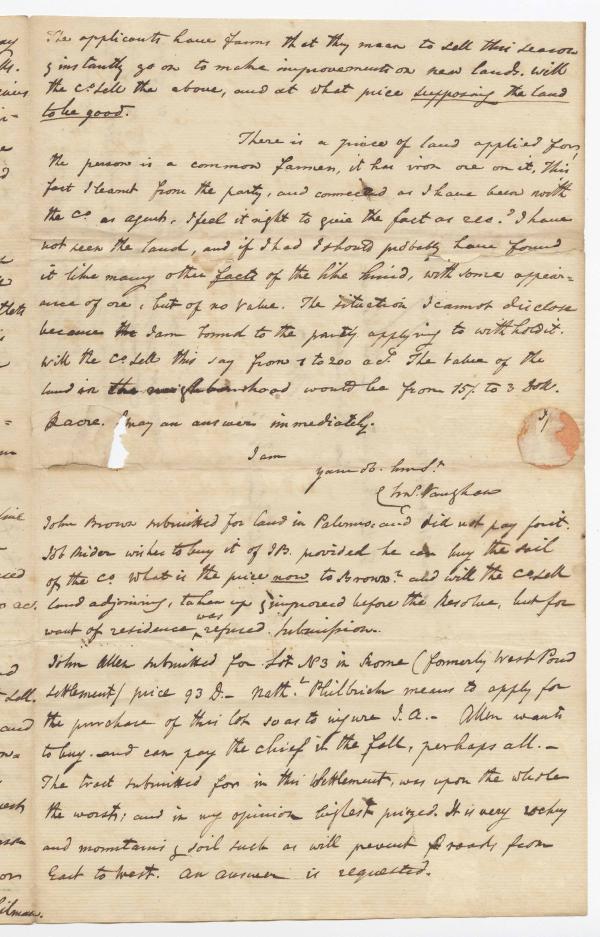 The applicants have farms that they mean to sell this season
& instantly go on to make improvements on new lands. will
the Co. sell the above, and at what price supposing the land
to be good.
There is a piece of land applied for,
the person is a common farmer, it has iron ore on it, This
fact I learnt from the party, and connected as I have been with
the Co. as agent, I feel it right to give the fact as recd. I have
not seen the land, and if I had I should probably have found
it like many other facts of the like kind, with some appear=
ance of ore, but of no value. The situation I cannot disclose
because I am bound to the party applying to withhold it.
will the Co. sell this say from 1 to 200 acs. The value of the
land in the neighbourhood would be from 15/ to 3 Dolls.
P acre. I pray an answer immediately.
I am
your ob. hm St.
Chas. Vaughan
John Brown submitted for land in Palermo, and did not pay for it.
Job Rider wishes to buy it of J B. provided he can buy the soil
of the Co. what is the price now to Brown? and will the Co. sell
land adjoining, taken up & improved before the Resolve, but for
want of residence was refused submission.
John Allen submitted for Lot N 3 in Rome (formerly West Pond
settlement) price 93 D.- Nathl. Philbrick means to apply for
the purchase of this lot so as to injure J. A. - Allen wants
to buy. and can pay the chief in the fall, perhaps all. -
The tract submitted for in this settlement, was upon the whole
the worst; and in my opinion highest prized. It is very rocky
and mountains & soil such as will prevent roads from
East to west. an answer is requested.